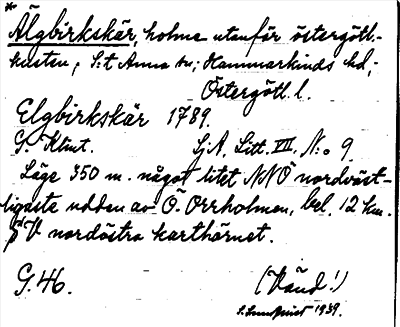 Älgbirkskär, holme utanför östergötl.-
kusten; S:t Anna sn; Hammarkinds hd;
Östergötl. l.
Elgbirkskär 1789.
G. Klint. SjA. Litt. VII. N:o 9.
Läge 350 m. något litet NNÖ nordväst-
ligaste udden av Ö. Orrholmen, bel. 12 km.
V nordöstra karthörnet.
G. 46. (Vänd!)
S. Sundquist 1939.